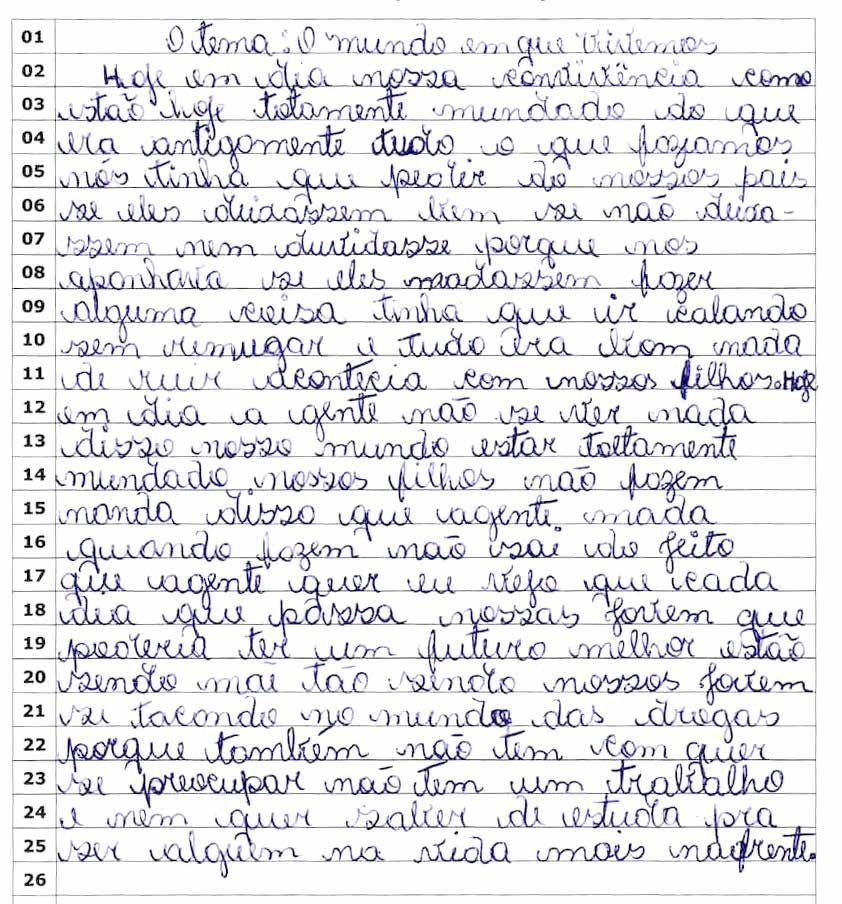 01 O tema: O mundo em que vivemos
02 Hoje em dia nossa convivência como
03 estão hoje totamente mundado do que
04 era antigomente tudo o que fazíamos
05 nós tinha que pedir dó nossos pais
06 se eles deixassem bem se não deixa-
07 ssem nem duvidasse porque nos
08 apanhava se eles madassem fazer
09 alguma coisa tinha que ir calando
10 sem remugar e tudo era bom nada
11 de ruir acontecia com nossos filhos. Hoje
12 em dia a gente não se ver nada
13 disso nosso mundo estar toltamente
14 mundado nossos filhos não fazem
15 nanda disso que agente. mada
16 quando fazem não sai do jeito
17 que agente quer eu vejo que cada
18 dia que passa nossas jovem que
19 poderia ter um futuro melhor estão
20 sendo mãe tão sendo nossos jovem
21 se tacondo no mundo das drogas
22 porque também não tem com quer
23 se preocupar não tem um trabalho
24 e nem quer saber de estuda pra
25 ser alguém na vida mais nafrente.
26